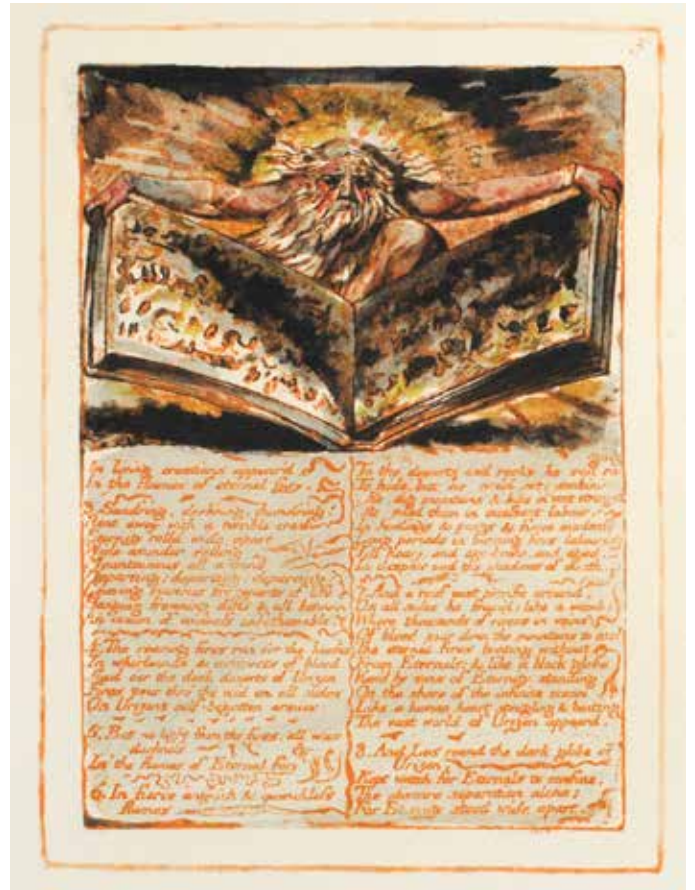 In living creations appear'd
In the flames of eternal fury
3. Sundring, darkning, thundring!
Rent away with a terrible crash
Eternity roll'd wide apart
Wide asunder rolling
Mountainous all around
Departing; departing; departing:
Leaving ruinous fragments of life
Hanging frowning cliffs & all between
An ocean of voidness unfathomable.
4. The roaring fires ran o'er the heav'ns
In whirlwinds & cataracts of blood
And o'er the dark desarts of Urizen
Fires pour thro' the void on all sides
On Urizens self-begotten armies.
5. But no light from the fires. all was
darkness
In the flames of Eternal fury
6. In fierce anguish & quenchless
flames
To the desarts and rocks he ran
To hide, but he could not: combining
He dug mountains & hills in vast strength,
He piled them in incessant labour,
In howlings & pangs & fierce madness
Long periods in burning fires labouring
Till hoary, and age-broke, and aged,
In despair and the shadows of death.
7. And a roof, vast petrific around,
On all sides he fram'd: like a womb;
Where thousands of rivers in veins
Of blood pour down the mountains to cool
The eternal fires beating without
From Eternals; & like a black globe
View'd by sons of Eternity, standing
On the shore of the infinite ocean
Like a human heart strugling & beating
The vast world of Urizen appear'd.
8. And Los round the dark globe of
Urizen,
Kept watch for Eternals to confine,
The obscure separation alone;
For Eternity stood wide apart,